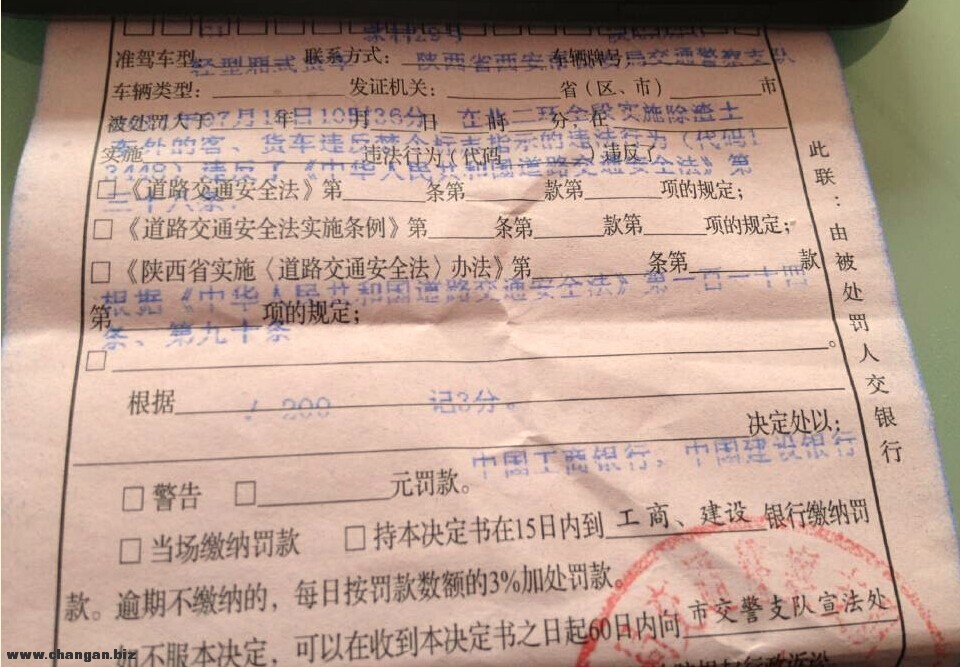 准驾车型: 联系方式: 车辆牌号:
轻型厢式货车 陕西省西安市公安局交通警察支队
车辆类型: 发证机关: 省(区、市) 市
07月18日10时36分 在北二环全段实施除渣土
被处罚人于 年 月 日 时 分,在
车外的客、货车违反禁令标志指示的违法行为(代码1
实施 违法行为(代码 )违反了
违反了《中华人民共和国道路交通安全法》第
□《道路交通安全法》第 条第 款第 项的规定;
三十八条
□《道路交通安全法实施条例》第 条第 款第 项的规定;
□《陕西省实施〈道路交通安全法〉办法》第 条第 款
根据《中华人民共和国道路交通安全法》第一百一十四
第 项的规定;
条、第九十条
□ 。
根据
200 记3分。
决定处以:
中国工商银行,中国建设银行
□ 警告 □ 元罚款。
□ 当场缴纳罚款 □ 持本决定书在15日内到 工商、建设 银行缴纳罚
款。逾期不缴纳的,每日按罚款数额的3%加处罚款。
如不服本决定,可以在收到本决定书之日起60日内向 市交警支队宣法处
此联:由被处罚人交银行
www.changan.biz